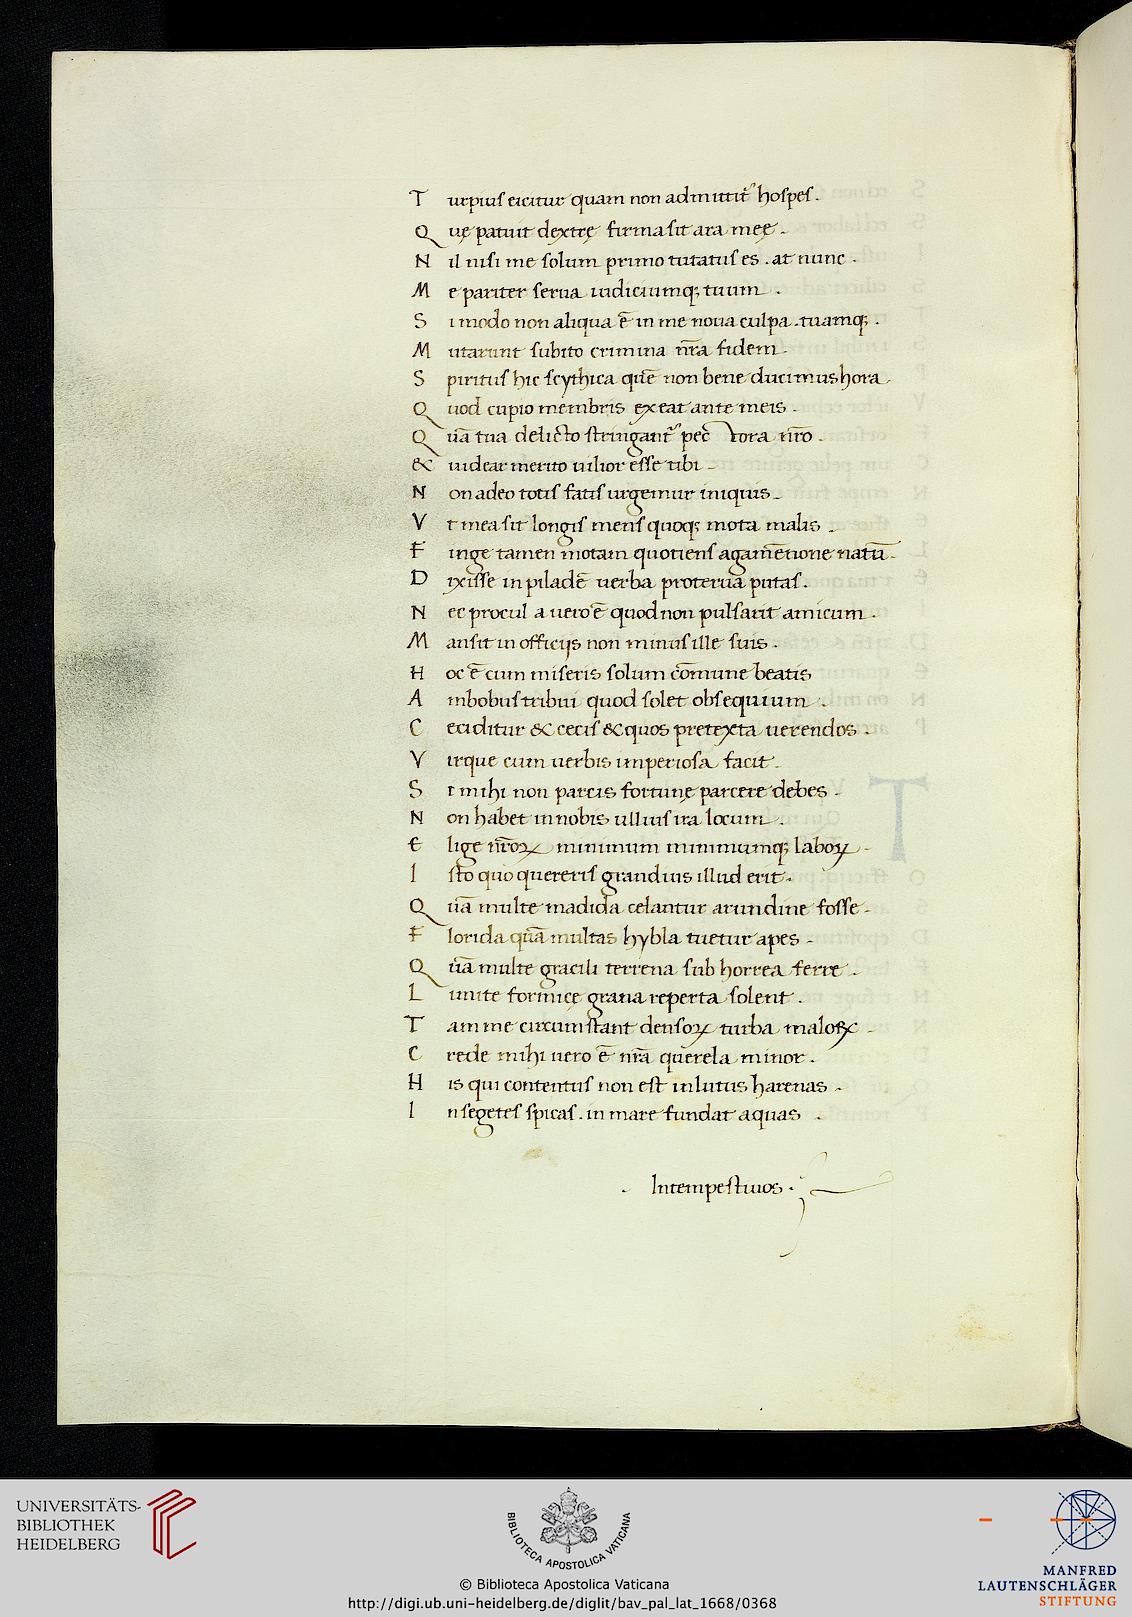 T urpius eicitur quam non admittit᷑ hospes.
Q uę patuit dextrę firma sit ara meę.
N il nisi me solum primo tutatus es. at nunc.
M e pariter serua iudiciumq; tuum.
S i modo non aliqua ē in me noua culpa. tuamq;.
M utarunt subito crimina nr̄a fidem.
S piritus hic scythica quē non bene ducimus hora
Q uod cupio membris exeat ante meis.
Q uā tua delicto stringant᷑ pectora nr̄o.
& uidear merito uilior esse tibi.
N on adeo totis fatis urgemur iniquis.
V t mea sit longis mens quoq; mota malis.
F inge tamen motam quotiens agamēnone natū.
D ixisse in piladē uerba proterua putas.
N ec procul a uero ē quod non pulsarit amicum.
M ansit in officijs non minus ille suis.
H oc ē cum miseris solum cōmune beatis
A mbobus tribui quod solet obsequium.
C eciditur & cecis & quos pretexta uerendos.
V irque cum uerbis imperiosa facit.
S i mihi non parcis fortunę parcere debes.
N on habet in nobis ullius ira locum.
E lige nr̄oꝝ minimum minimumq; laboꝝ.
I sto quo quereris grandius illud erit.
Q uā multe madida celantur arundine fosse.
F lorida quā multas hybla tuetur apes.
Q uā multe gracili terrena sub horrea ferre.
L imite formicę grana reperta solent.
T am me circumstant densoꝝ turba maloꝝ.
C rede mihi uero ē nr̄a querela minor.
H is qui contentus non est in lutus harenas.
I n segetes spicas. in mare fundat aquas.
. Intempestiuos.
UNIVERSITÄTS-
BIBLIOTHEK
HEIDELBERG
BIBLIOTECA APOSTOLICA VATICANA
MANFRED
LAUTENSCHLÄGER
STIFTUNG
© Biblioteca Apostolica Vaticana
http://digi.ub.uni-heidelberg.de/diglit/bav_pal_lat_1668/0368